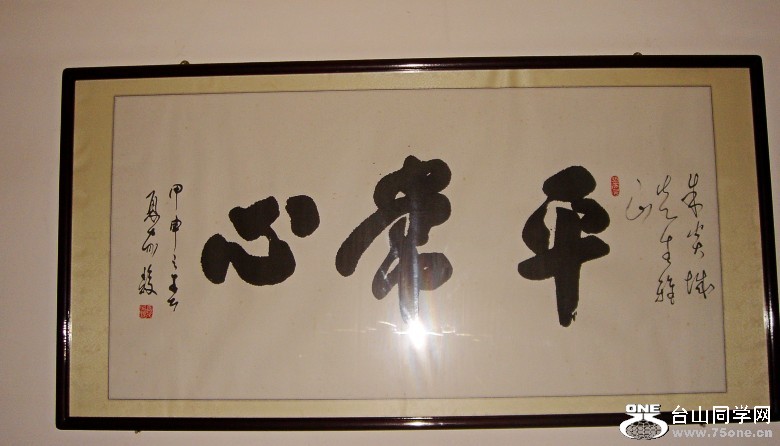 朱炎城
先生雅
正
平常心
甲申之
ONE
台山同学网
www.75one.cn